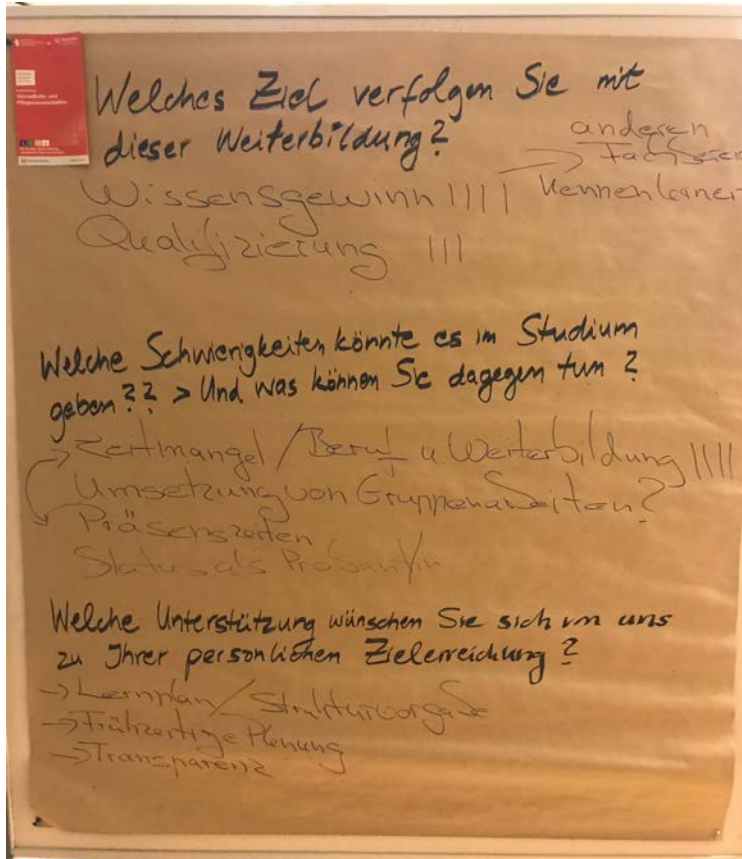 Gesundheits- und
Pflegewissenschaften
Welches Ziel verfolgen Sie mit
dieser Weiterbildung?
Wissensgewinn ||||
→ anderen
kennenlernen
Qualifizierung |||
Welche Schwierigkeiten könnte es im Studium
geben?? > Und was können Sie dagegen tun?
→ Zeitmangel / Beruf u. Weiterbildung ||||
Umsetzung von Gruppenarbeiten?
Präsenszeiten
Status als Probant/in
Welche Unterstützung wünschen Sie sich von uns
zu Ihrer persönlichen Zielerreichung?
→ Lernplan / Strukturvorgabe
→ Frühzeitige Planung
→ Transparenz